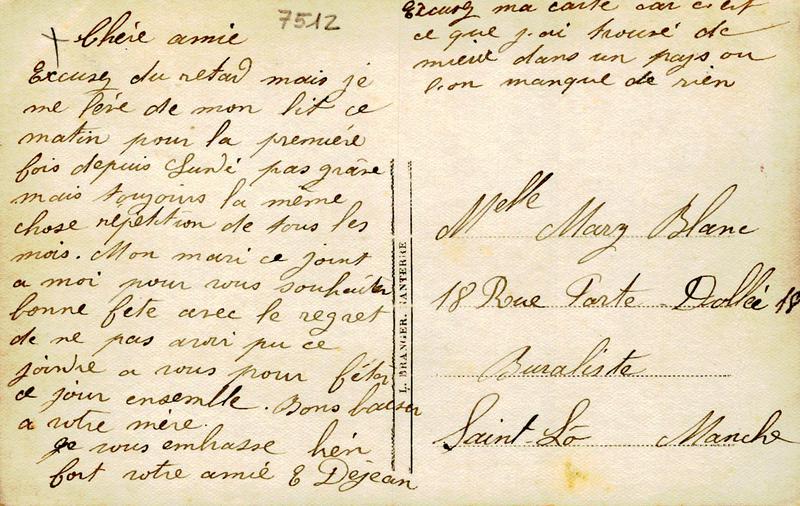 7512
Chère amie
Excusez du retard mais je
me lève de mon lit ce
matin pour la première
fois depuis Lundi pas grave
mais toujours la même
chose répétition de tous les
mois. Mon mari ce joint
a moi pour vous souhaiter
bonne fête avec le regret
de ne pas avoir pu ce
joindre a vous pour fêter
ce jour ensemble. Bons baiser
a votre mère.
Je vous embrasse bien
fort votre amie E Dejean
Excusez ma carte car c'est
ce que j'ai trouvé de
mieux dans un pays ou
l'on manque de rien
L. BRANGER. NANTERRE
Melle Mary Blanc
18 Rue Porte Dollée 18
Buraliste
Saint-Lô Manche